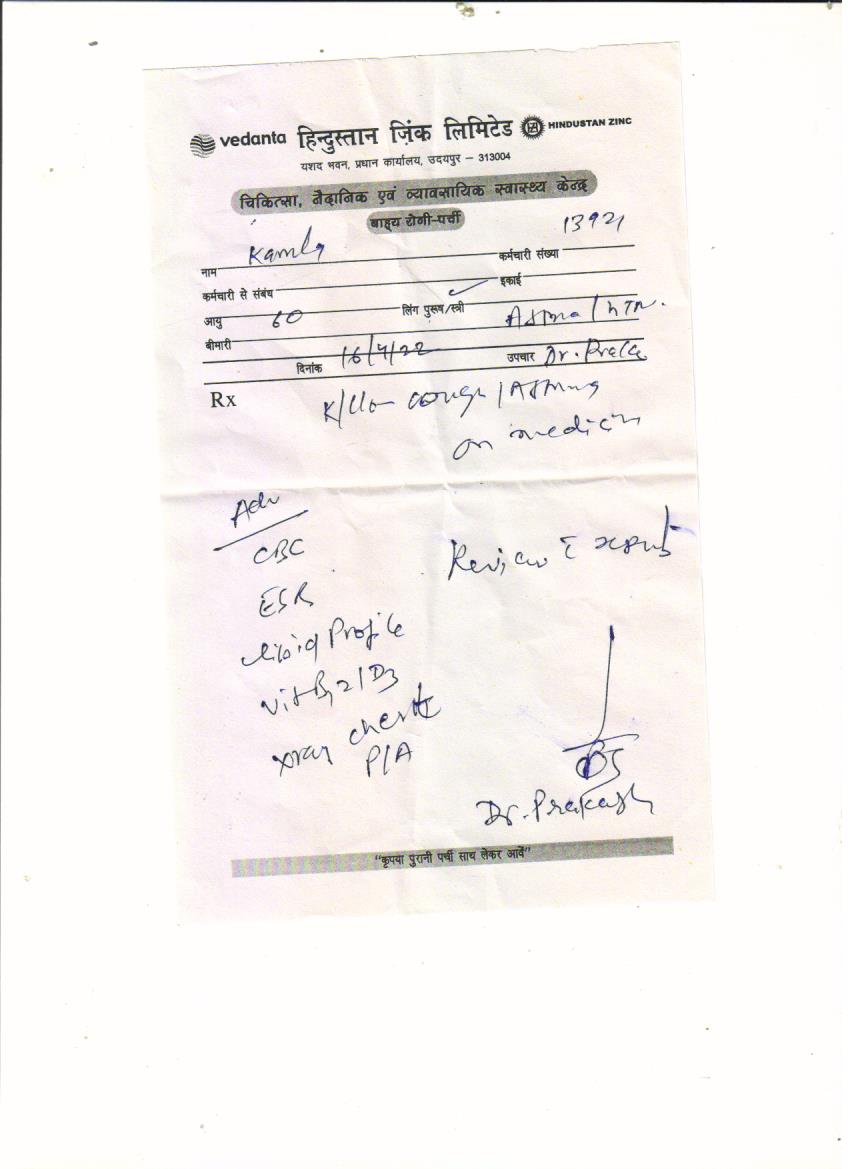 vedanta हिन्दुस्तान ज़िंक लिमिटेड HINDUSTAN ZINC
यशद भवन, प्रधान कार्यालय, उदयपुर – 313004
चिकित्सा, नैदानिक एवं व्यावसायिक स्वास्थ्य केन्द्र
बाह्य रोगी-पर्ची
नाम Kamla कर्मचारी संख्या 13921
कर्मचारी से संबंध इकाई
आयु 60 लिंग पुरूष/स्त्री ✓
बीमारी Astma / HTN.
दिनांक 16/4/22 उपचार Dr.
Rx
cough / Asthma
on medicin
Adv
CBC
ESR
Lipid Profile
Vit B12 / D3
Review c report
xray chest
P/A
Dr. Prakash
"कृपया पुरानी पर्ची साथ लेकर आवें"